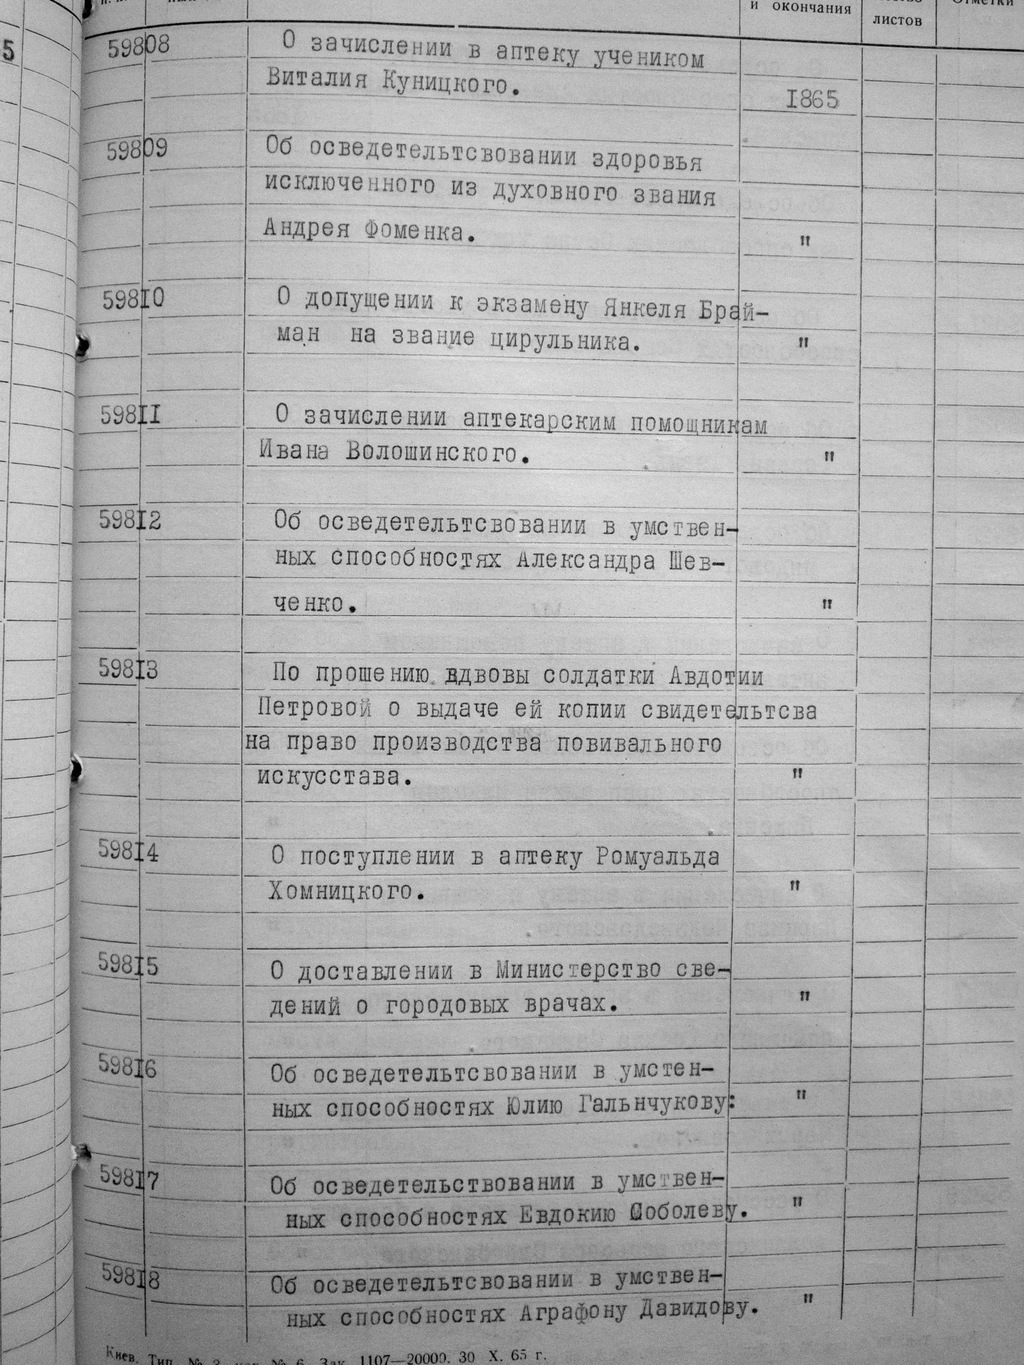 и окончания
листов
Отметки
5
59808 О зачислении в аптеку учеником
Виталия Куницкого.
1865
59809 Об осведетельтсвовании здоровья
исключенного из духовного звания
Андрея Фоменка. "
59810 О допущении к экзамену Янкеля Брай-
ман на звание цирульника. "
59811 О зачислении аптекарским помощникам
Ивана Волошинского. "
59812 Об осведетельтсвовании в умствен-
ных способностях Александра Шев-
ченко. "
59813 По прошению вдвовы солдатки Авдотии
Петровой о выдаче ей копии свидетельтсва
на право производства повивального
искусстава. "
59814 О поступлении в аптеку Ромуальда
Хомницкого. "
59815 О доставлении в Министерство све-
дений о городовых врачах. "
59816 Об осведетельтсвовании в умстен-
ных способностях Юлию Гальнчукову: "
59817 Об осведетельствовании в умствен-
ных способностях Евдокию Соболеву. "
59818 Об осведетельтсвовании в умствен-
ных способностях Аграфону Давидову. "
Киев. Тип. № 6. Зак. 1107—20000. 30 X. 65 г.